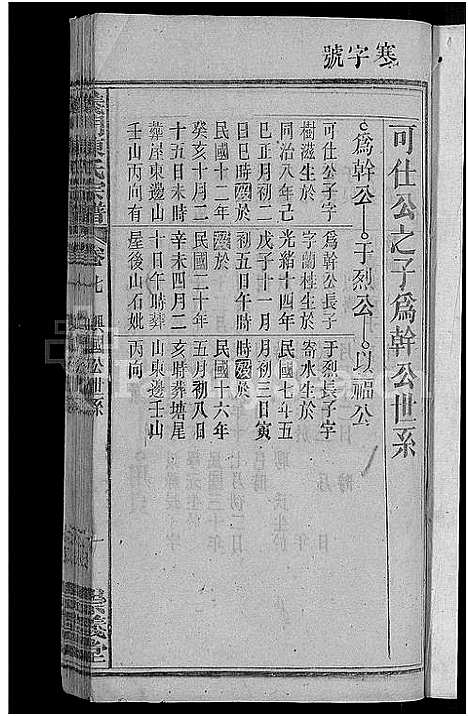 寒字號
可仕公之子爲幹公世系
爲幹公——于烈公——以福公
可仕公子字
樹滋生於
同治八年己
巳正月初二
日巳時歿於
民國十二年
癸亥十月二
十五日未時
葬屋東邊山
壬山丙向有
爲幹公長子
字蘭桂生於
光緒十四年
戊子十一月
初五日午時
歿於
民國二十年
辛未四月二
十日午時葬
屋後山石妣
于烈長子字
寄水生於
民國七年五
月初三日寅
時歿於
民國十六年
五月初八日
亥時葬塘尾
山東邊壬山
丙向
義門陳氏宗譜
卷七
興國公世系
十
聚義堂